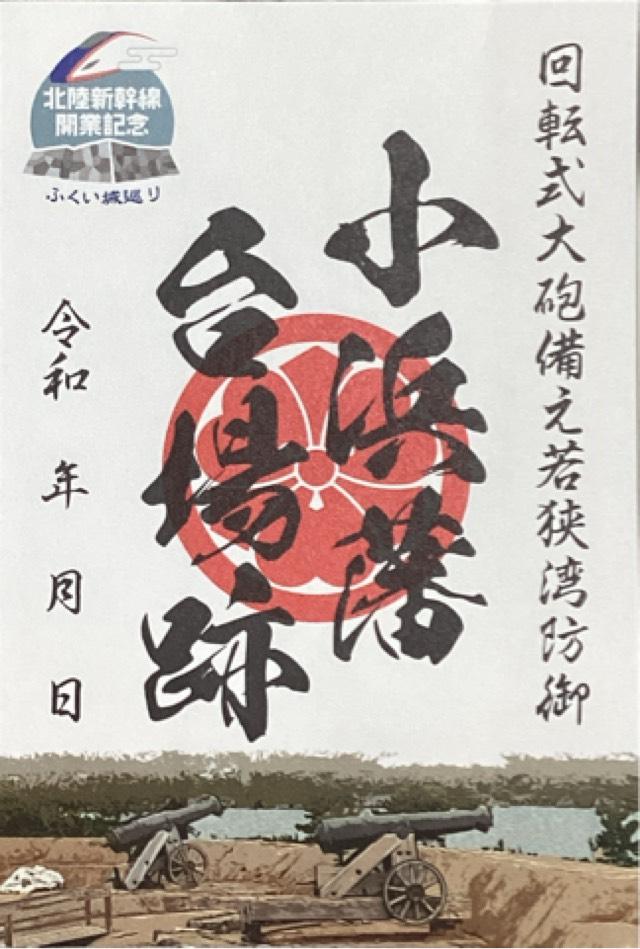 回転式大砲備え若狭湾防御
小浜藩
台場跡
北陸新幹線
開業記念
ふくい城巡り
令和 年 月 日